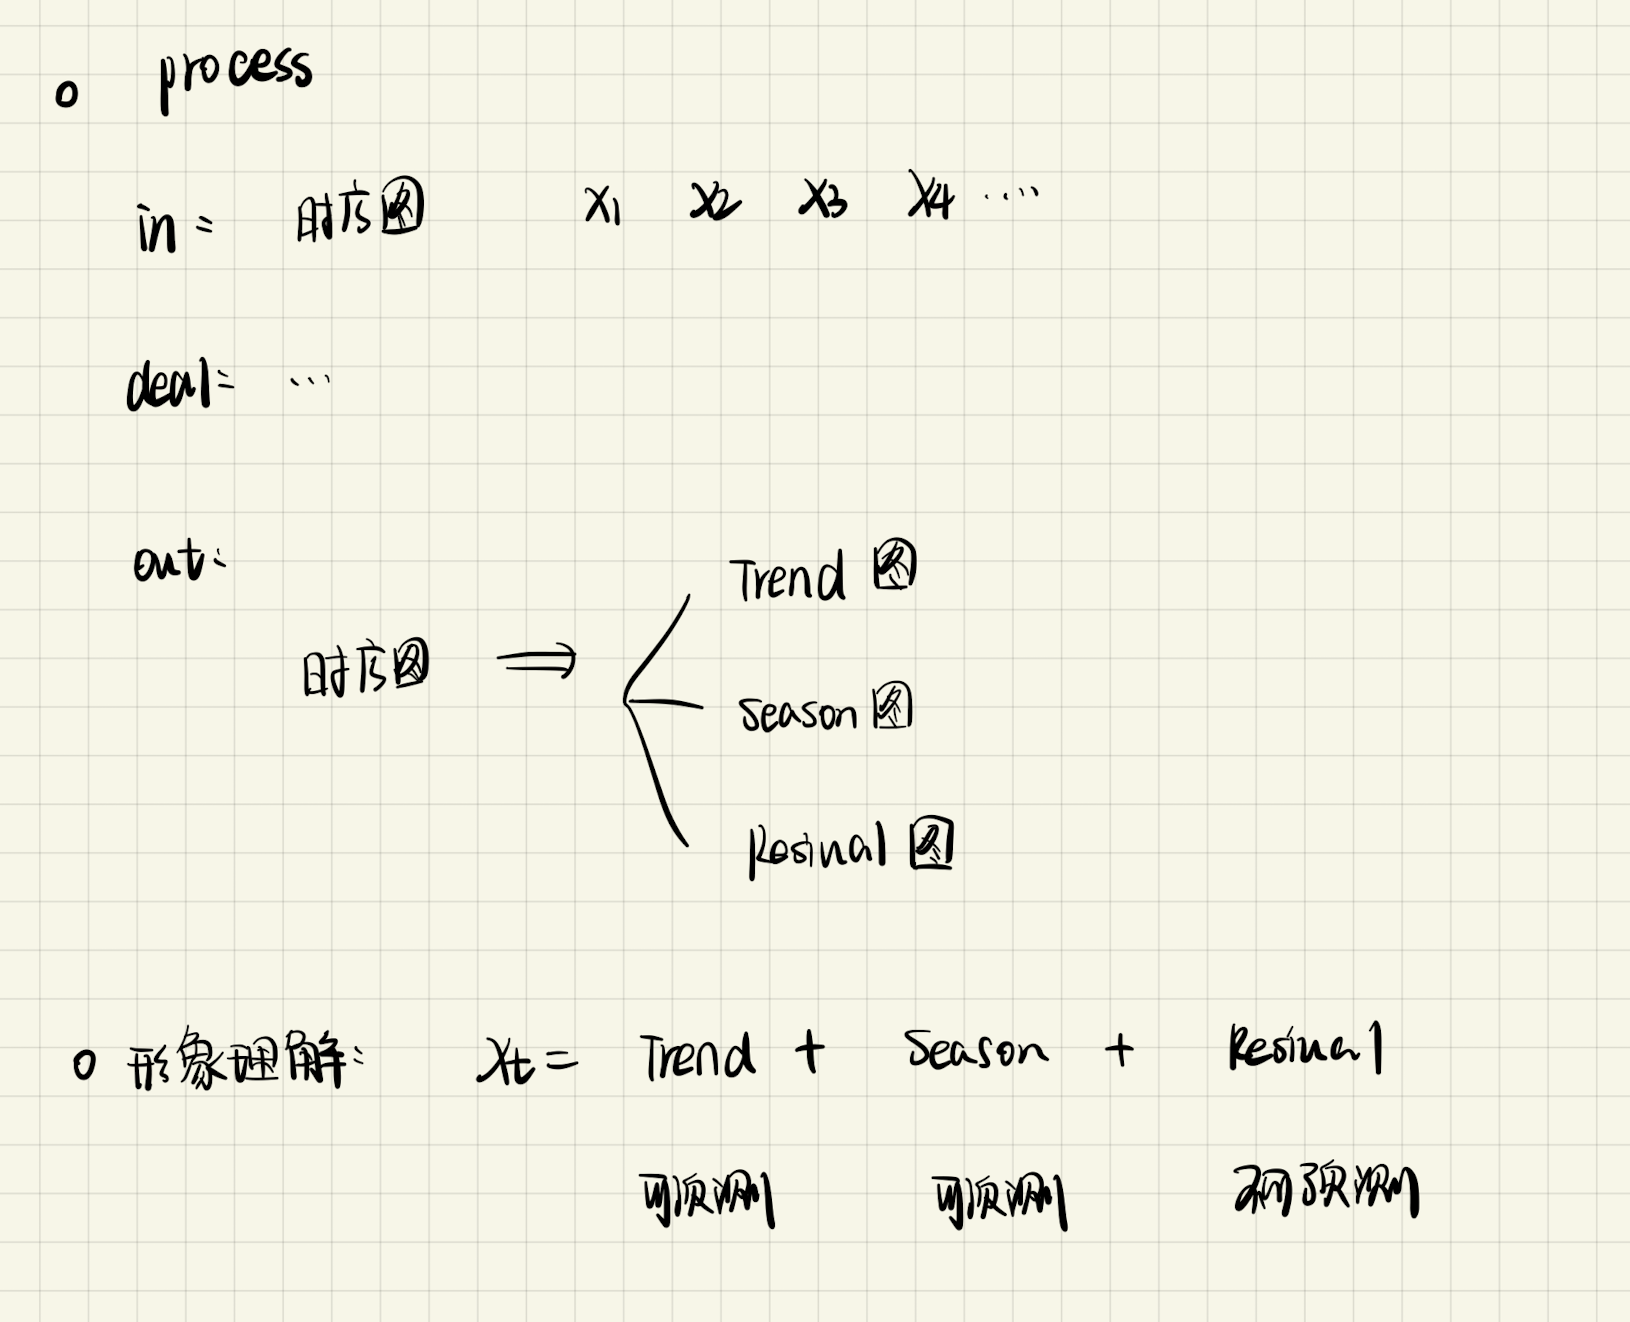 process
in: 时序图 x1 x2 x3 x4 ....
deal: ...
out:
Trend 图
时序图 ⇒
season 图
Resinal 图
形象理解: xt = Trend + Season + Resinal
可预测 可预测 不可预测